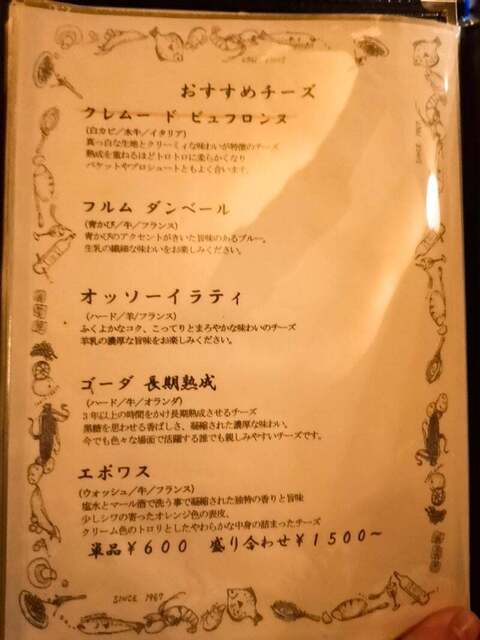 おすすめチーズ
クレムー ド ビュフロンヌ
(白カビ/水牛/イタリア)
真っ白な生地とクリーミィな味わいが特徴のチーズ
熟成を重ねるほどトロトロに柔らかくなり
バケットやプロシュートともよく合います。
フルム ダンベール
(青かび/牛/フランス)
青かびのアクセントがきいた旨味のあるブルー。
生乳の繊細な味わいをお楽しみください。
オッソーイラティ
(ハード/羊/フランス)
ふくよかなコク、こってりとまろやかな味わいのチーズ
羊乳の濃厚な旨味をお楽しみください。
ゴーダ 長期熟成
(ハード/牛/オランダ)
3年以上の時間をかけ長期熟成させるチーズ
黒糖を思わせる香ばしさ、凝縮された濃厚な味わい。
今でも色々な場面で活躍する誰でも親しみやすいチーズです。
エポワス
(ウォッシュ/牛/フランス)
塩水とマール酒で洗う事で凝縮された独特の香りと旨味
少しシワの寄ったオレンジ色の表皮、
クリーム色のトロリとしたやわらかな中身の詰まったチーズ
単品¥600 盛り合わせ¥1500~
SINCE 1967